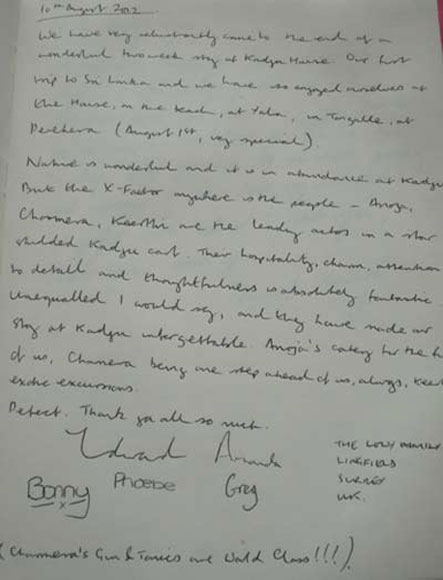 10th August 2012
We have very reluctantly come to the end of a
wonderful two week stay at Kadju House. Our first
trip to Sri Lanka and we have so enjoyed ourselves at
the House, on the beach, at Yala, in Tangalle, at
Perehera (August 1st, very special).
Nature is wonderful and it is in abundance at Kadju
But the X-Factor anywhere is the people - Anoja,
Chamera, Keerthi are the leading actors in a star
studded Kadju cast. Their hospitality, charm, attention
to detail and thoughtfulness is absolutely fantastic
Unequalled I would say, and they have made our
stay at Kadju unforgettable. Anoja's catering for the
of us, Chamera being one step ahead of us, always,
exotic excursions.
Perfect. Thank you all so much.
Edward Amanda
Bonny Phoebe Greg
THE FAMILY
LINGFIELD
SURREY
UK.
(Chamera's Gin & Tonics are World Class!!!).